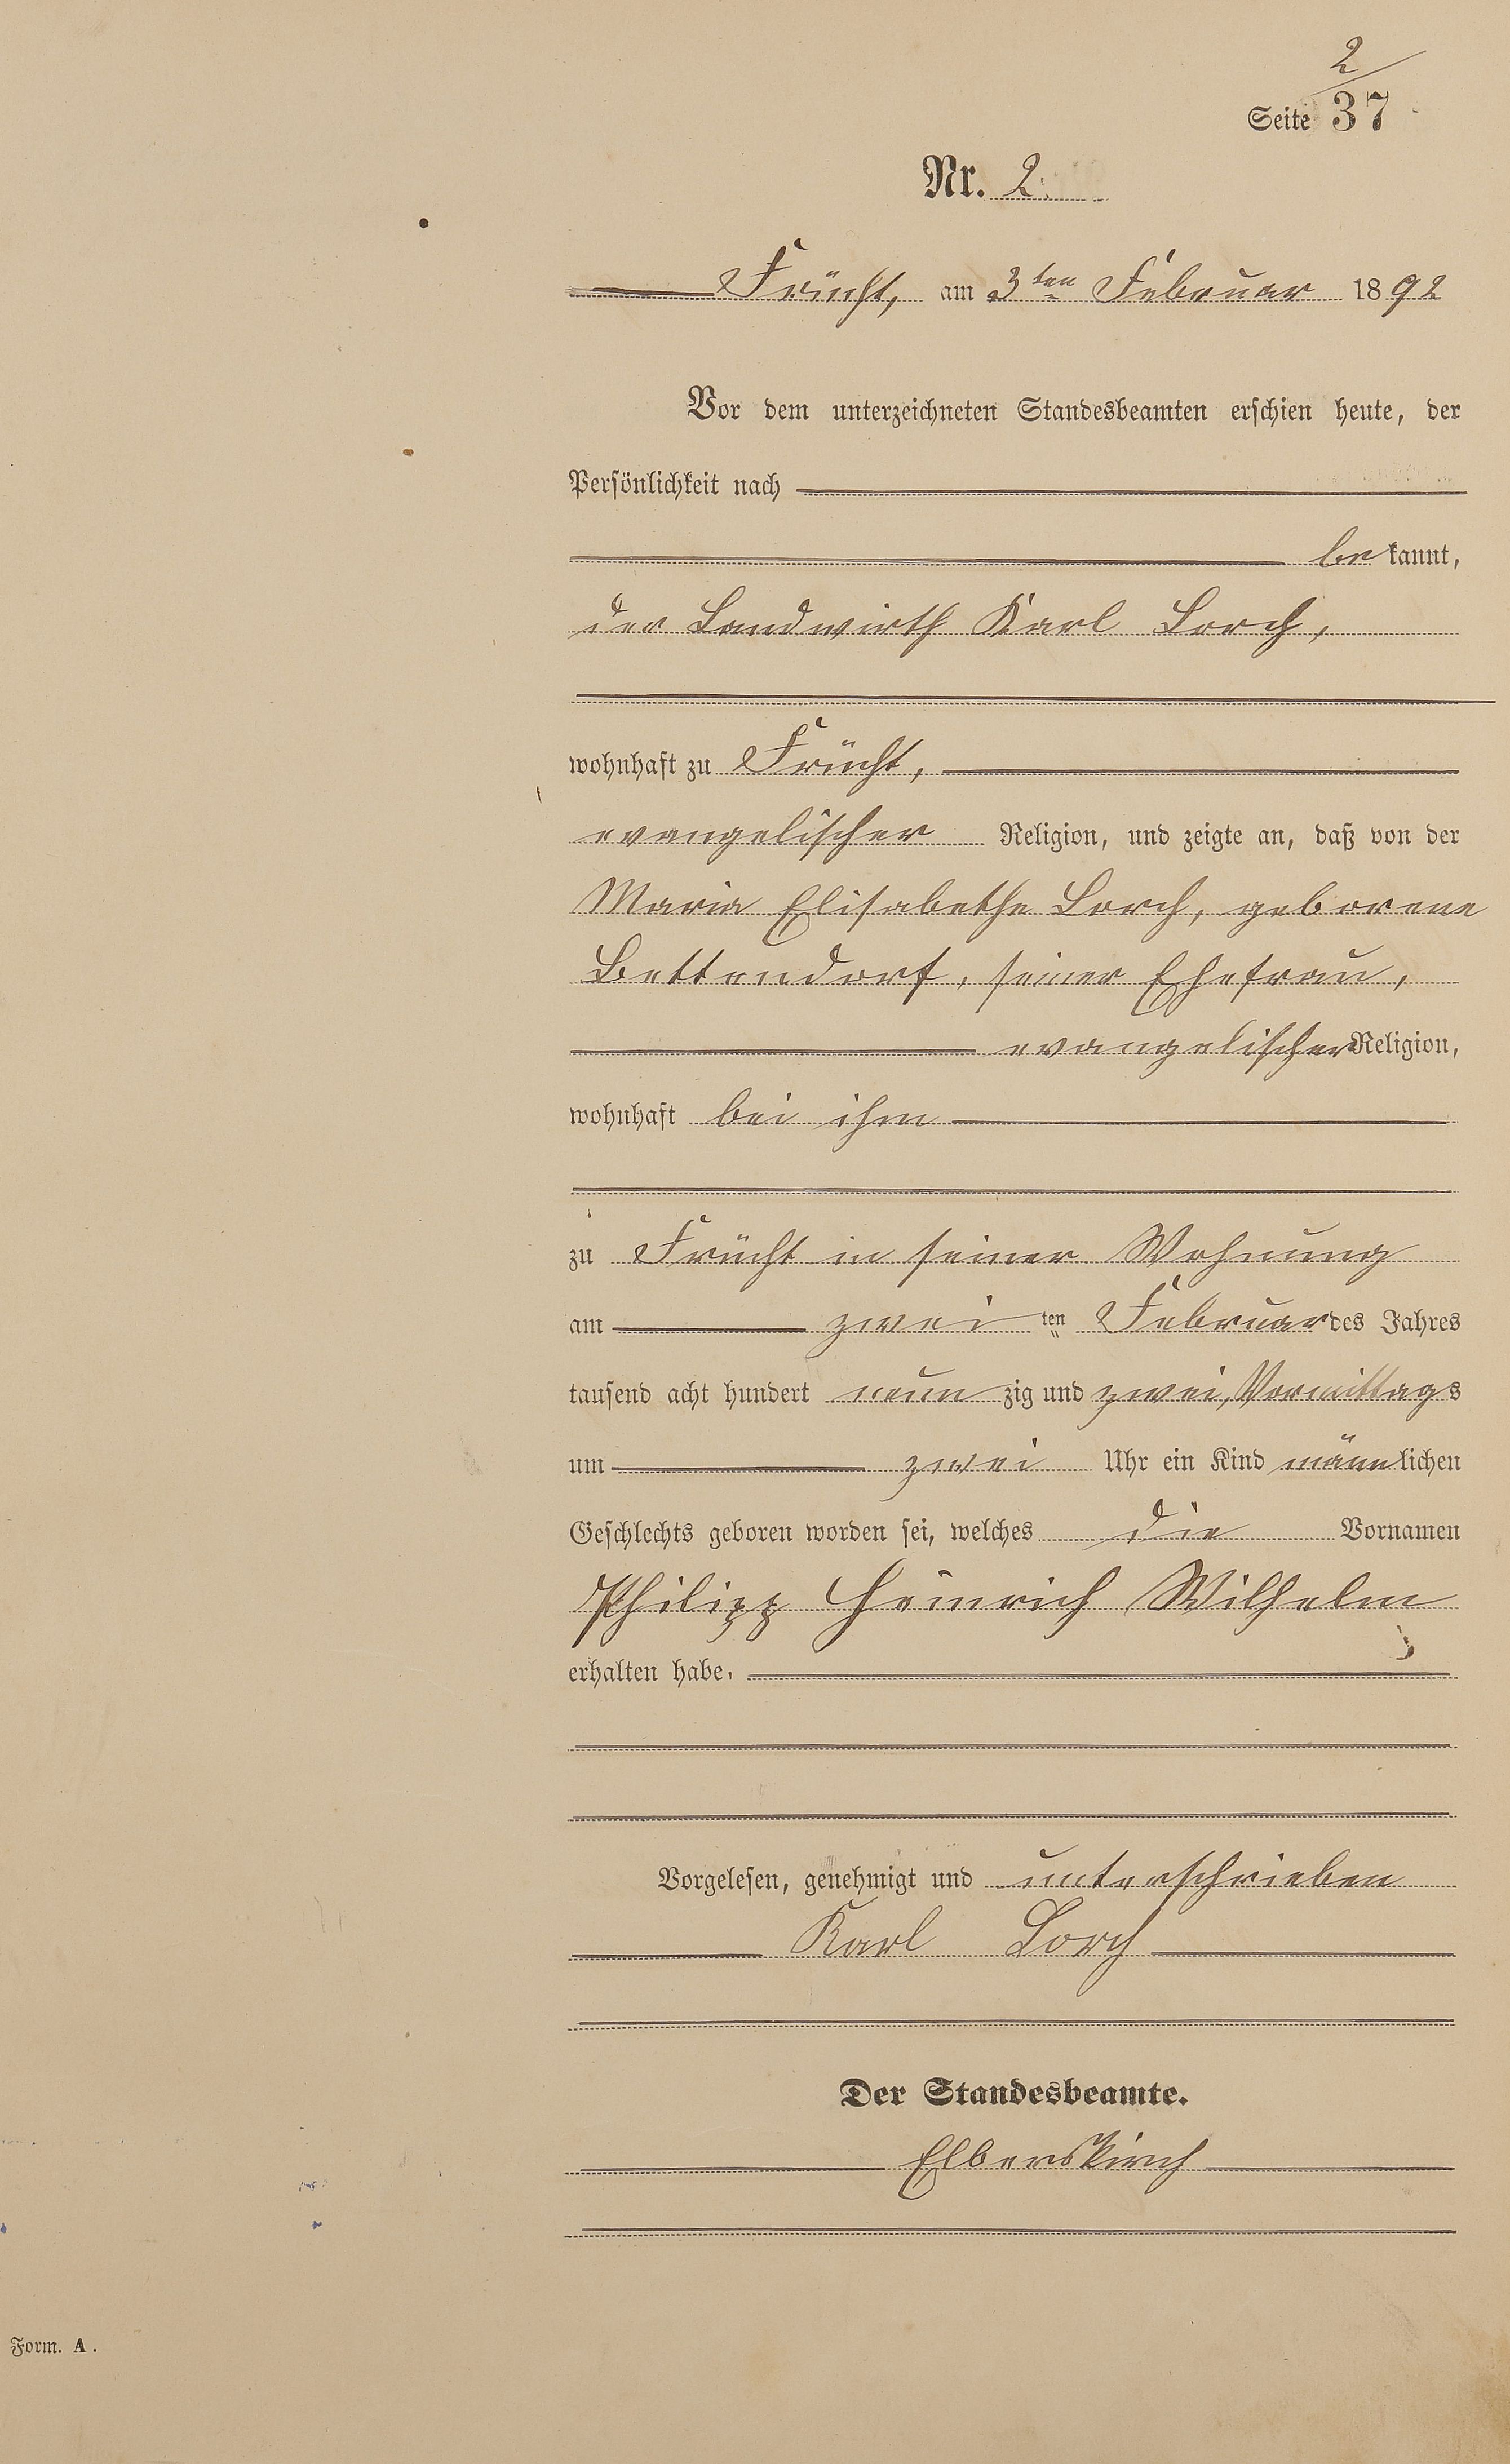 2
Seite 37
Nr. 2.
Frücht, am 3ten Februar 1892
Vor dem unterzeichneten Standesbeamten erschien heute, der
Persönlichkeit nach
bekannt,
der Landwirth Karl Lorch,
wohnhaft zu Frücht,
evangelischer Religion, und zeigte an, daß von der
Maria Elisabethe Lorch, geborene
Bettendorf, seiner Ehefrau,
evangelischer Religion,
wohnhaft bei ihm
zu Frücht in seiner Wohnung
am zwei ten Februar des Jahres
tausend acht hundert neunzig und zwei, Vormittags
um zwei Uhr ein Kind männlichen
Geschlechts geboren worden sei, welches die Vornamen
Philipp Heinrich Wilhelm
erhalten habe.
Vorgelesen, genehmigt und unterschrieben
Karl Lorch
Der Standesbeamte.
Elberskirch
Form. A.